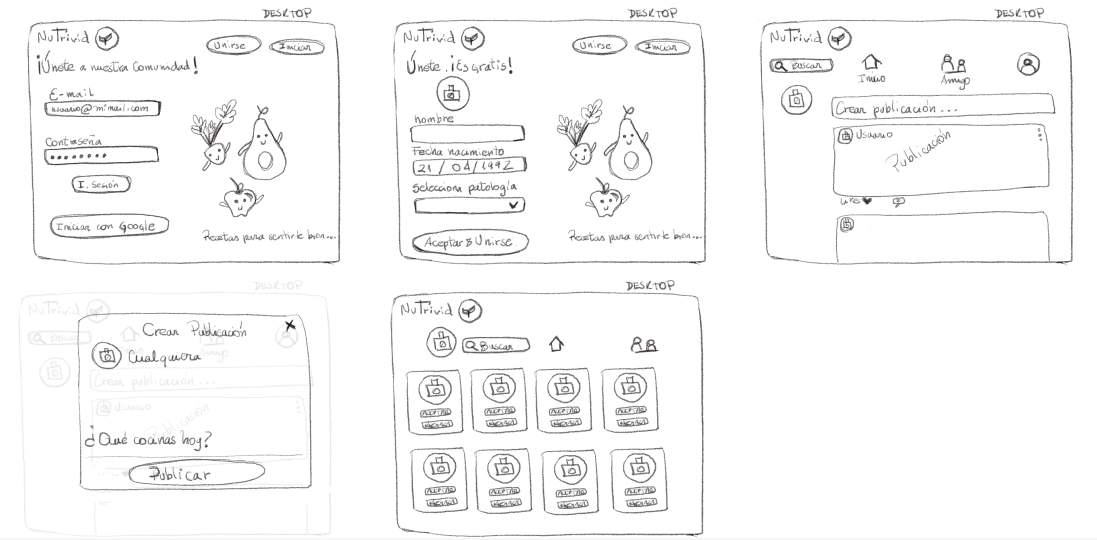 DESKTOP
NuTrivid
Unirse
Iniciar
¡Únete a nuestra Comunidad!
E-mail
usuario@mimail.com
Contraseña
I. Sesión
Iniciar con Google
Recetas para sentirte bien...
DESKTOP
NuTrivid
Unirse
Iniciar
Únete. ¡Es gratis!
nombre
Fecha nacimiento
21 / 04 / 1992
Selecciona patología
Aceptar & Unirse
Recetas para sentirte bien...
DESKTOP
NuTrivid
Buscar
Inicio
Amigo
Crear publicación...
Usuario
Publicación
DESKTOP
NuTrivid
Buscar
Amigo
Crear Publicación
Cualquiera
Crear publicación...
Usuario
Publicación
¿Qué cocinas hoy?
Publicar
DESKTOP
NuTrivid
Buscar